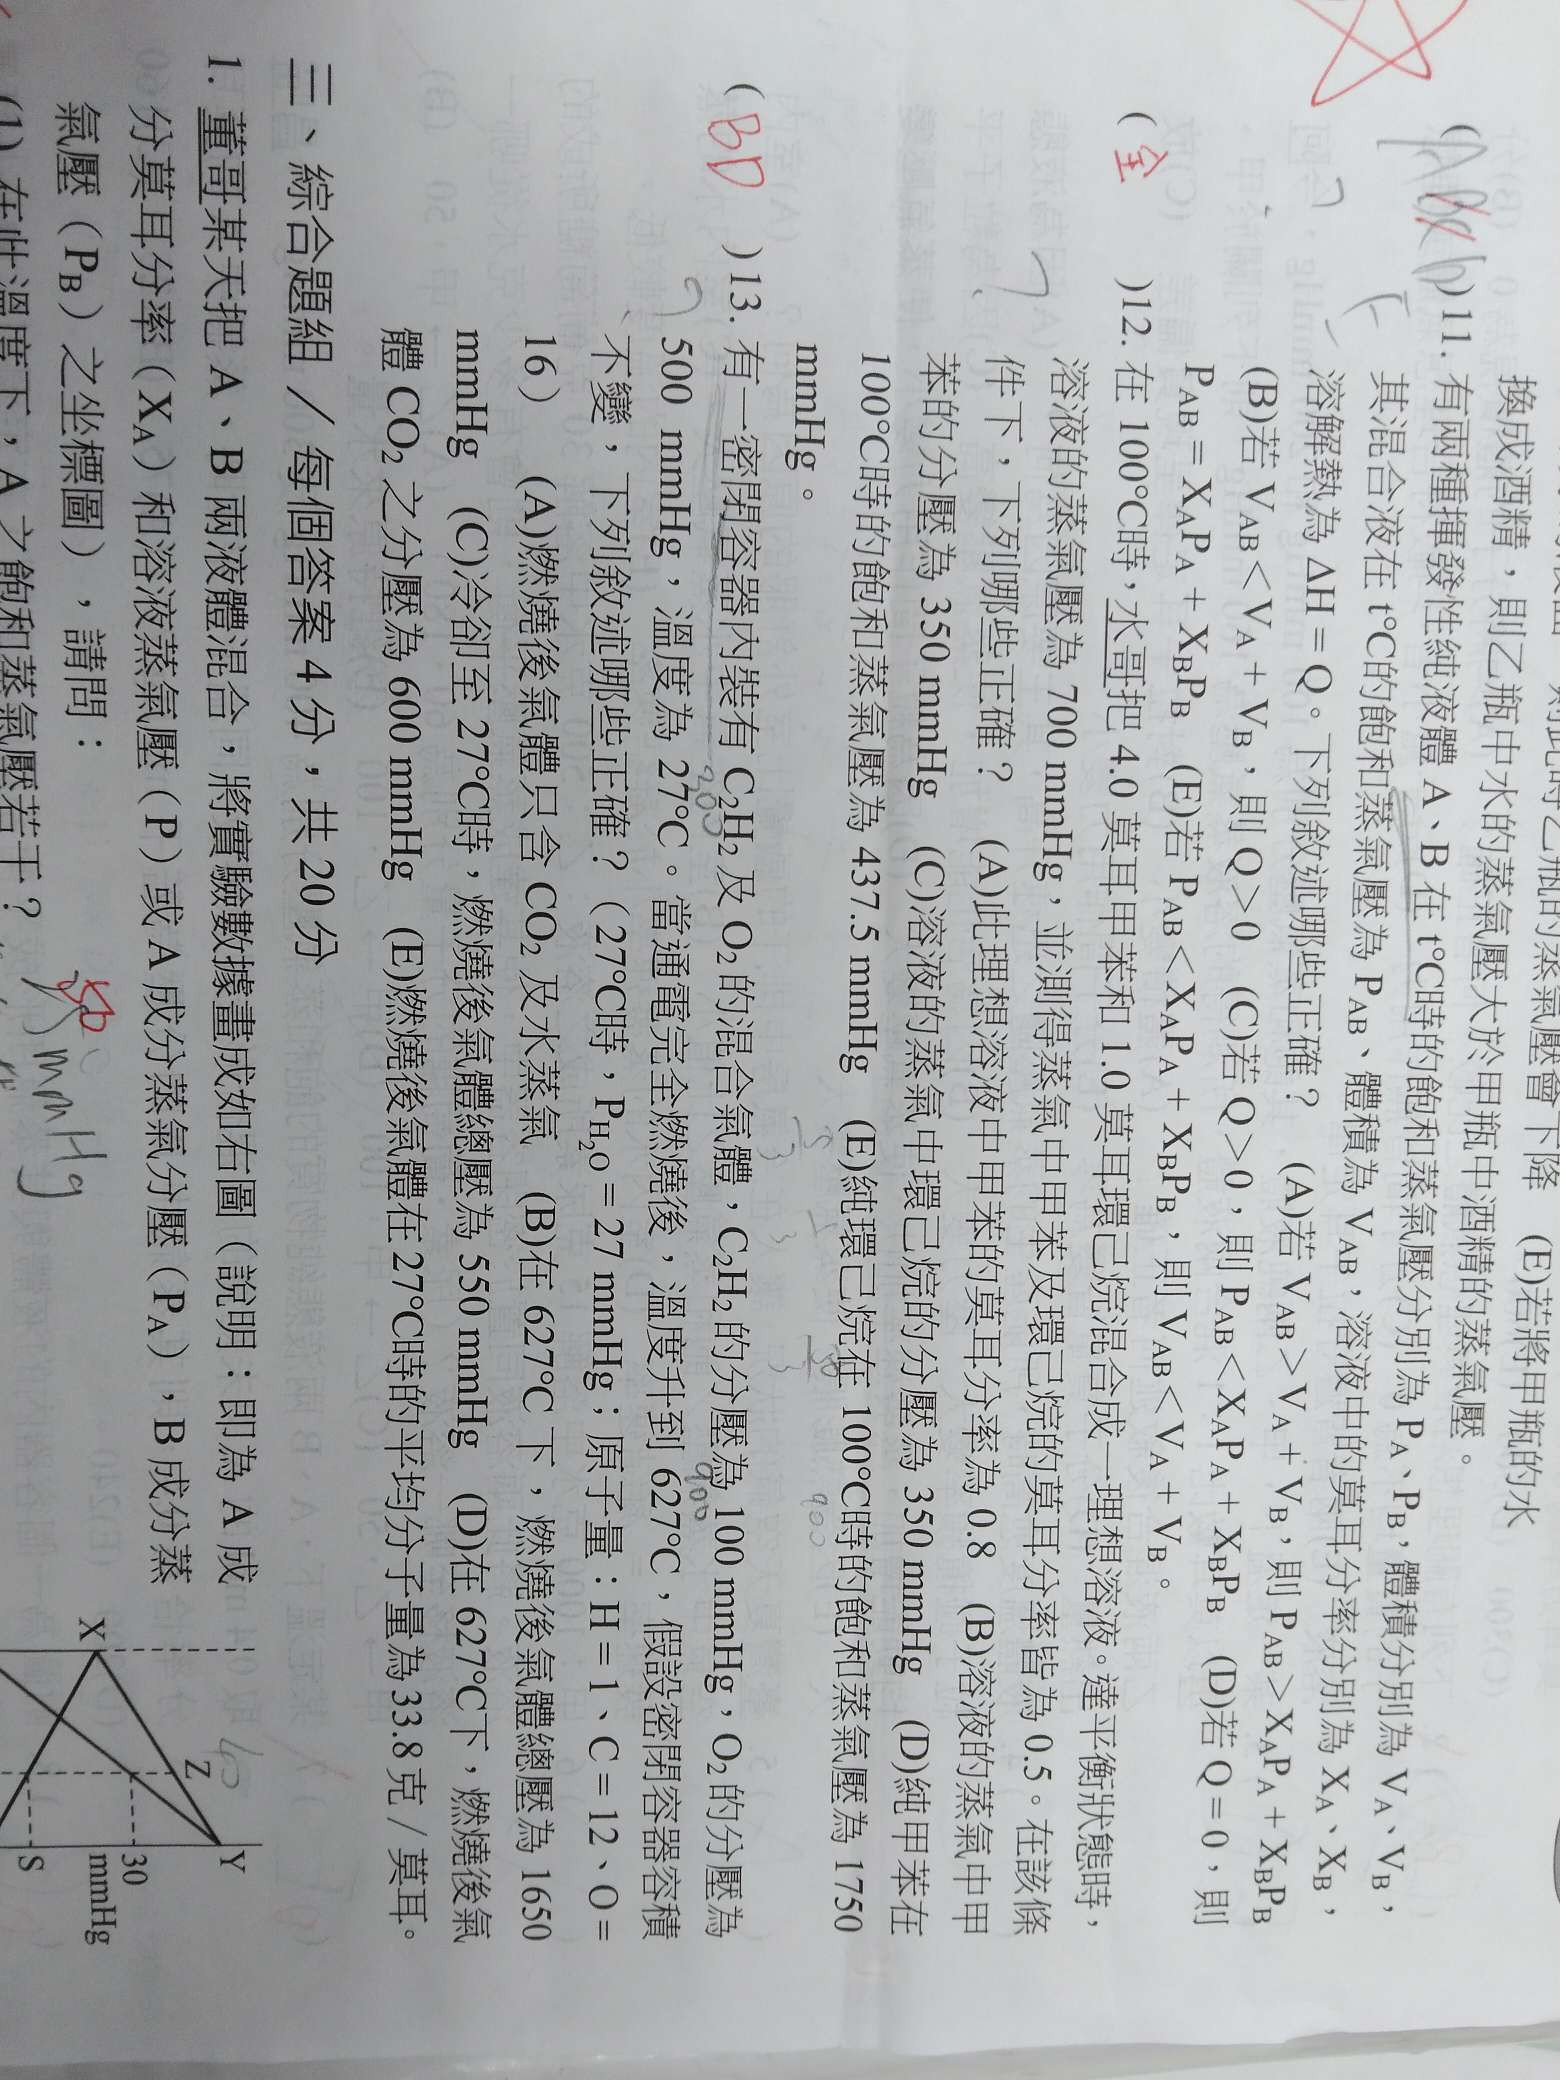 換成酒精，則乙瓶中水的蒸氣壓大於甲瓶中酒精的蒸氣壓。
(E)若將甲瓶的水
11. 有兩種揮發性純液體 A、B 在 t°C時的飽和蒸氣壓分別為 PA、PB，體積分別為 VA、VB，
其混合液在 t°C的飽和蒸氣壓為 PAB、體積為 VAB，溶液中的莫耳分率分別為 XA、XB，
溶解熱為 ΔH = Q。下列敘述哪些正確？ (A)若 VAB > VA + VB，則 PAB > XAPA + XBPB
(B)若 VAB < VA + VB，則 Q > 0 (C)若 Q > 0，則 PAB < XAPA + XBPB (D)若 Q = 0，則
PAB = XAPA + XBPB (E)若 PAB < XAPA + XBPB，則 VAB < VA + VB。
( 全 )12. 在 100°C時，水哥把 4.0 莫耳甲苯和 1.0 莫耳環己烷混合成一理想溶液。達平衡狀態時，
溶液的蒸氣壓為 700 mmHg，並測得蒸氣中甲苯及環己烷的莫耳分率皆為 0.5。在該條
件下，下列哪些正確？ (A)此理想溶液中甲苯的莫耳分率為 0.8 (B)溶液的蒸氣中甲
苯的分壓為 350 mmHg (C)溶液的蒸氣中環己烷的分壓為 350 mmHg (D)純甲苯在
100°C時的飽和蒸氣壓為 437.5 mmHg (E)純環己烷在 100°C時的飽和蒸氣壓為 1750
mmHg。
( BD )13. 有一密閉容器內裝有 C2H2 及 O2 的混合氣體，C2H2 的分壓為 100 mmHg，O2 的分壓為
500 mmHg，溫度為 27°C。當通電完全燃燒後，溫度升到 627°C，假設密閉容器容積
不變，下列敘述哪些正確？（27°C時，PH2O = 27 mmHg；原子量：H = 1、C = 12、O =
16） (A)燃燒後氣體只含 CO2 及水蒸氣 (B)在 627°C 下，燃燒後氣體總壓為 1650
mmHg (C)冷卻至 27°C時，燃燒後氣體總壓為 550 mmHg (D)在 627°C下，燃燒後氣
體 CO2 之分壓為 600 mmHg (E)燃燒後氣體在 27°C時的平均分子量為 33.8 克／莫耳。
三、綜合題組／每個答案 4 分，共 20 分
1. 董哥某天把 A、B 兩液體混合，將實驗數據畫成如右圖（說明：即為 A 成
分莫耳分率（XA）和溶液蒸氣壓（P）或 A 成分蒸氣分壓（PA），B 成分蒸
氣壓（PB）之坐標圖），請問：
(1) 在此溫度下，A 之飽和蒸氣壓若干？
mmHg
X
Z
Y
30
mmHg
S